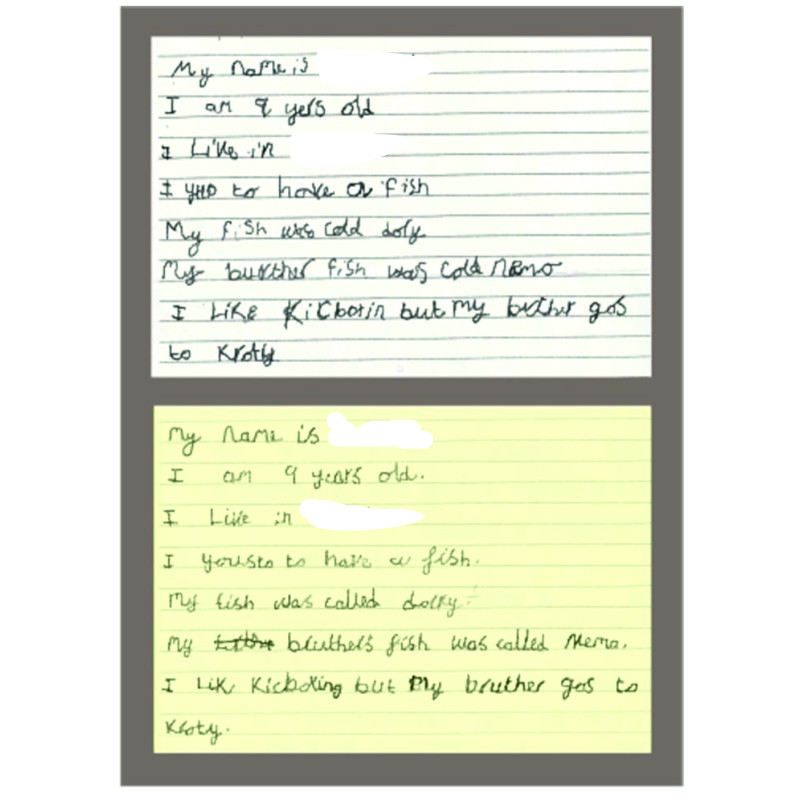 My name is
I am 9 yers old
I Like in
I to have a fish
My fish was cold doly
My bruther fish was cold nemo
I Like Kicboxin but my bruther gos
to Kroty
My name is
I am 9 years old.
I Live in
I yousto to have a fish.
My fish was called dolly.
My bruthers fish was called Nemo.
I Lik Kickboxing but My bruther gos to
Kroty.